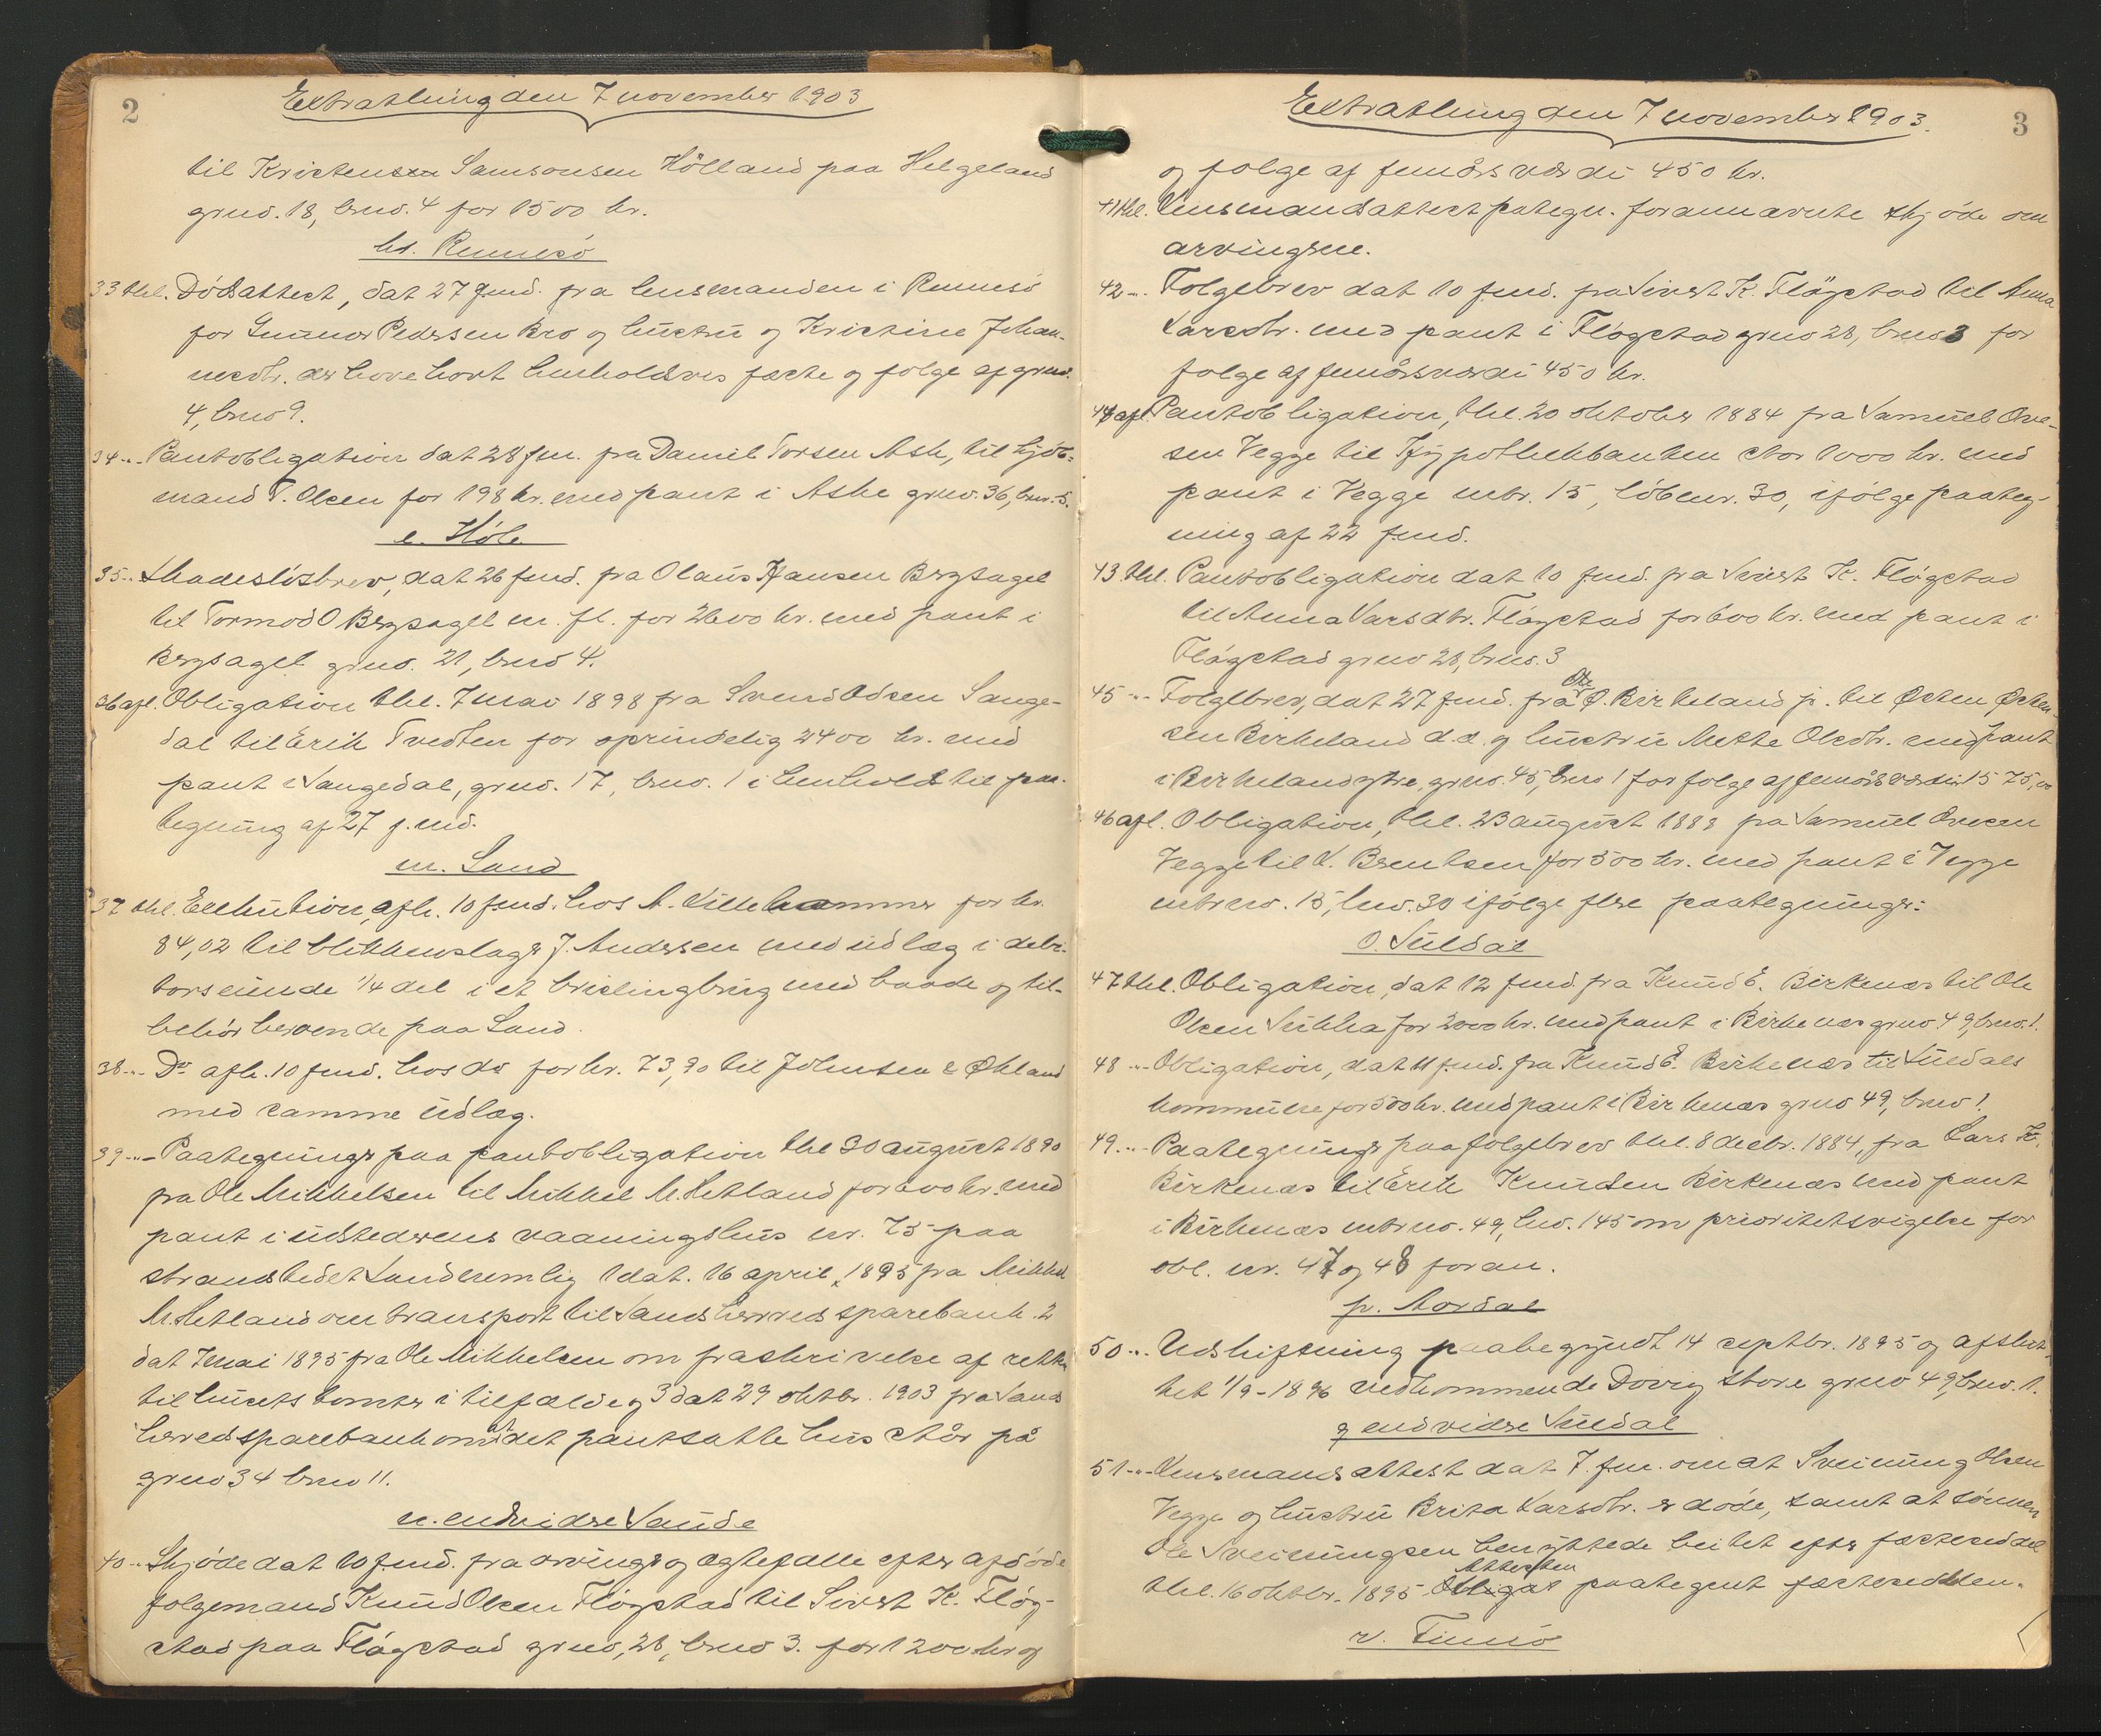 2
Extrathing den 7 november 1903
til Kristensen Samsonsen Hölland paa Helgeland
gnrd. 18, brno. 4 for 1500 kr.
hd. Rennesö
33 thl. Dödsattest, dat 27 f.md. fra lensmanden i Rennesö
for Gunnar Pedersen Bro og hustru og Kristine Johan-
nesdtr. der have havt henholdsvis fæste og følge af grno.
4, brno 9.
34 -"- Pantobligation dat 28 f.m. fra Daniel Torsen Ask, til kjöb-
mand T. Olsen for 198 kr. med pant i Aske grno. 36, brno. 5.
l. Höle
35 -"- Skadeslösbrev, dat 26 f.md. fra Olaus Hansen Bergsagel
til Tormod O Bergsagel m. fl. for 2600 kr. med pant i
Bergsagel grno. 21, brno 4.
36 afl. Obligation thl. 7 mai 1898 fra Svend Odsen Sange-
dal til Erik Tvedten for oprindelig 2400 kr. med
pant i Sangedal, grno. 17, brno. 1 i henhold til paa-
tegning af 27 f.md.
m. Sand
37 thl. Exekution, afh. 10 f.md. hos A. Lillehammer for kr.
84,02 til blikkenslager J. Andersen med udlæg i debi-
tors eiende 1/4 del i et brislingbrug med baade og til-
behör beroende paa Sand.
38 -"- Do afh. 10 f.md. hos do for kr. 73,90 til Johnsen & Økland
med samme udlæg.
39 -"- Paategninger paa pantobligation thl 30 august 1890
fra Ole Mikkelsen til Mikkel M. Hetland for 600 kr. med
pant i udstederens vaaningshus nr. 75 paa
strandstedet Sand nemlig 1 dat. 16 april 1895 fra Mikkel
M. Hetland om transport til Sands herreds sparebank. 2
dat 7 mai 1895 fra Ole Mikkelsen om fraskrivelse af retten
til husets tomter i tilfælde og 3 dat 29 oktbr. 1903 fra Sands
herreds sparebank om at det pantsatte hus står på
grno 34 brno 11.
n. endvidere Saude
40 -"- Skjöde dat 10 f.md. fra arvinger og ægtefælle efter afdöde
folgemand Knud Olsen Flögstad til Sivert K. Flög-
stad paa Flögstad grno, 28, brno 3. for 1200 kr og
3
Extrathing den 7 november 1903.
og folge af femårsværdi 450 kr.
41 thl. Lensmandsattest pategn. forannævnte skjöde om
arvingerne.
42 -"- Folgebrev dat 10 f.md. fra Sivert K. Flögstad til Anna
Larsdtr. med pant i Flögstad grno 28, brno 3 for
folge af femårsværdi 450 kr.
44 afl. Pantobligation, thl. 20 oktober 1884 fra Samuel Ove-
sen Vegge til Hypothekbanken stor 1000 kr. med
pant i Vegge mtr. 15, löbenr. 30, ifölge paateg-
ning af 22 f.md.
43 thl. Pantobligation dat 10 f.md. fra Sivert K. Flögstad
til Anna Larsdtr. Flögstad for 600 kr. med pant i
Flögstad grno 28, brno. 3
45 -"- Folgebrev, dat 27 f.md. fra Ole O. Birkeland jr. til Østen Østen-
sen Birkeland d.æ. og hustru Mette Olsdtr. med pant
i Birkeland ytre, grno. 45, brno 1 for folge af femårsværdi 1575,00
46 afl. Obligation, thl. 23 august 1883 fra Samuel Ovesen
Vegge til S. Berntsen for 500 kr. med pant i Vegge
mtrno. 15, lno. 30 ifölge flere paategninger:
o. Suldal
47 thl. Obligation, dat 12 f.md. fra Knud E. Birkenæs til Ole
Olsen Sukka for 2000 kr. med pant i Birkenæs grno. 49, brno. 1.
48 -"- Obligation, dat 11 f.md. fra Knud E. Birkenæs til Suldals
kommune for 500 kr. med pant i Birkenæs grno 49, brno 1.
49 -"- Paategninger paa folgebrev thl. 8 decbr. 1884, fra Lars K.
Birkenæs til Erik Knudsen Birkenæs med pant
i Birkenæs mtrno. 49, lno. 145 om prioritetsvigelse for
obl. nr. 47 og 48 foran.
p. Aardal
50 -"- Udskiftning paabegyndt 14 septbr. 1895 og afslut-
tet 1/9-1896 vedkommende Dovig store grno 49, brno. 1.
q endvidere Suldal
51 -"- Lensmandsattest dat 7. f.m. om at Sveinung Olsen
Vegge og hustru Brita Larsdtr. er döde, samt at sönnen
Ole Sveinungsen benyttede beitet efter fæsteseddel
thl. 16 oktbr. 1895. Attesten paategnet fæsteseddelen.
r. Finnö